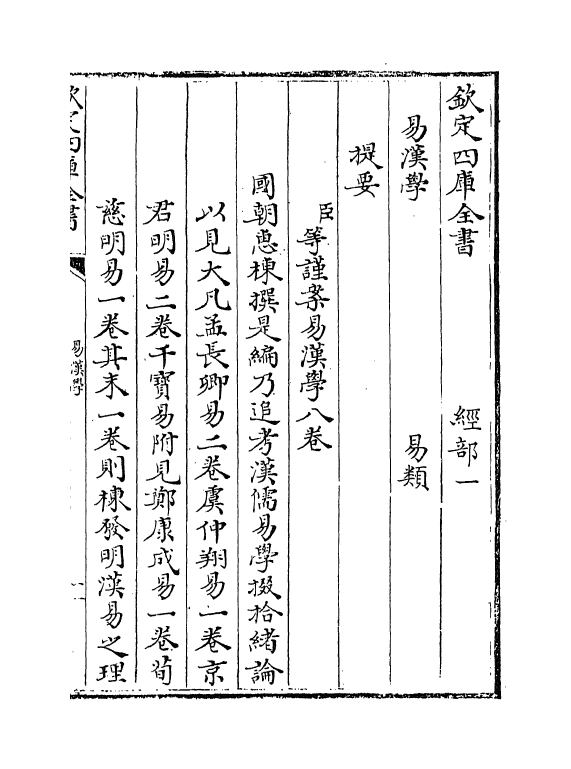 欽定四庫全書　經部一
易漢學　易類
提要
臣等謹案易漢學八卷
國朝惠棟撰是編乃追考漢儒易學掇拾緒論
以見大凡孟長卿易二卷虞仲翔易一卷京
君明易二卷干寶易附見鄭康成易一卷荀
慈明易一卷其末一卷則棟發明漢易之理
欽定四庫全書
易漢學
一